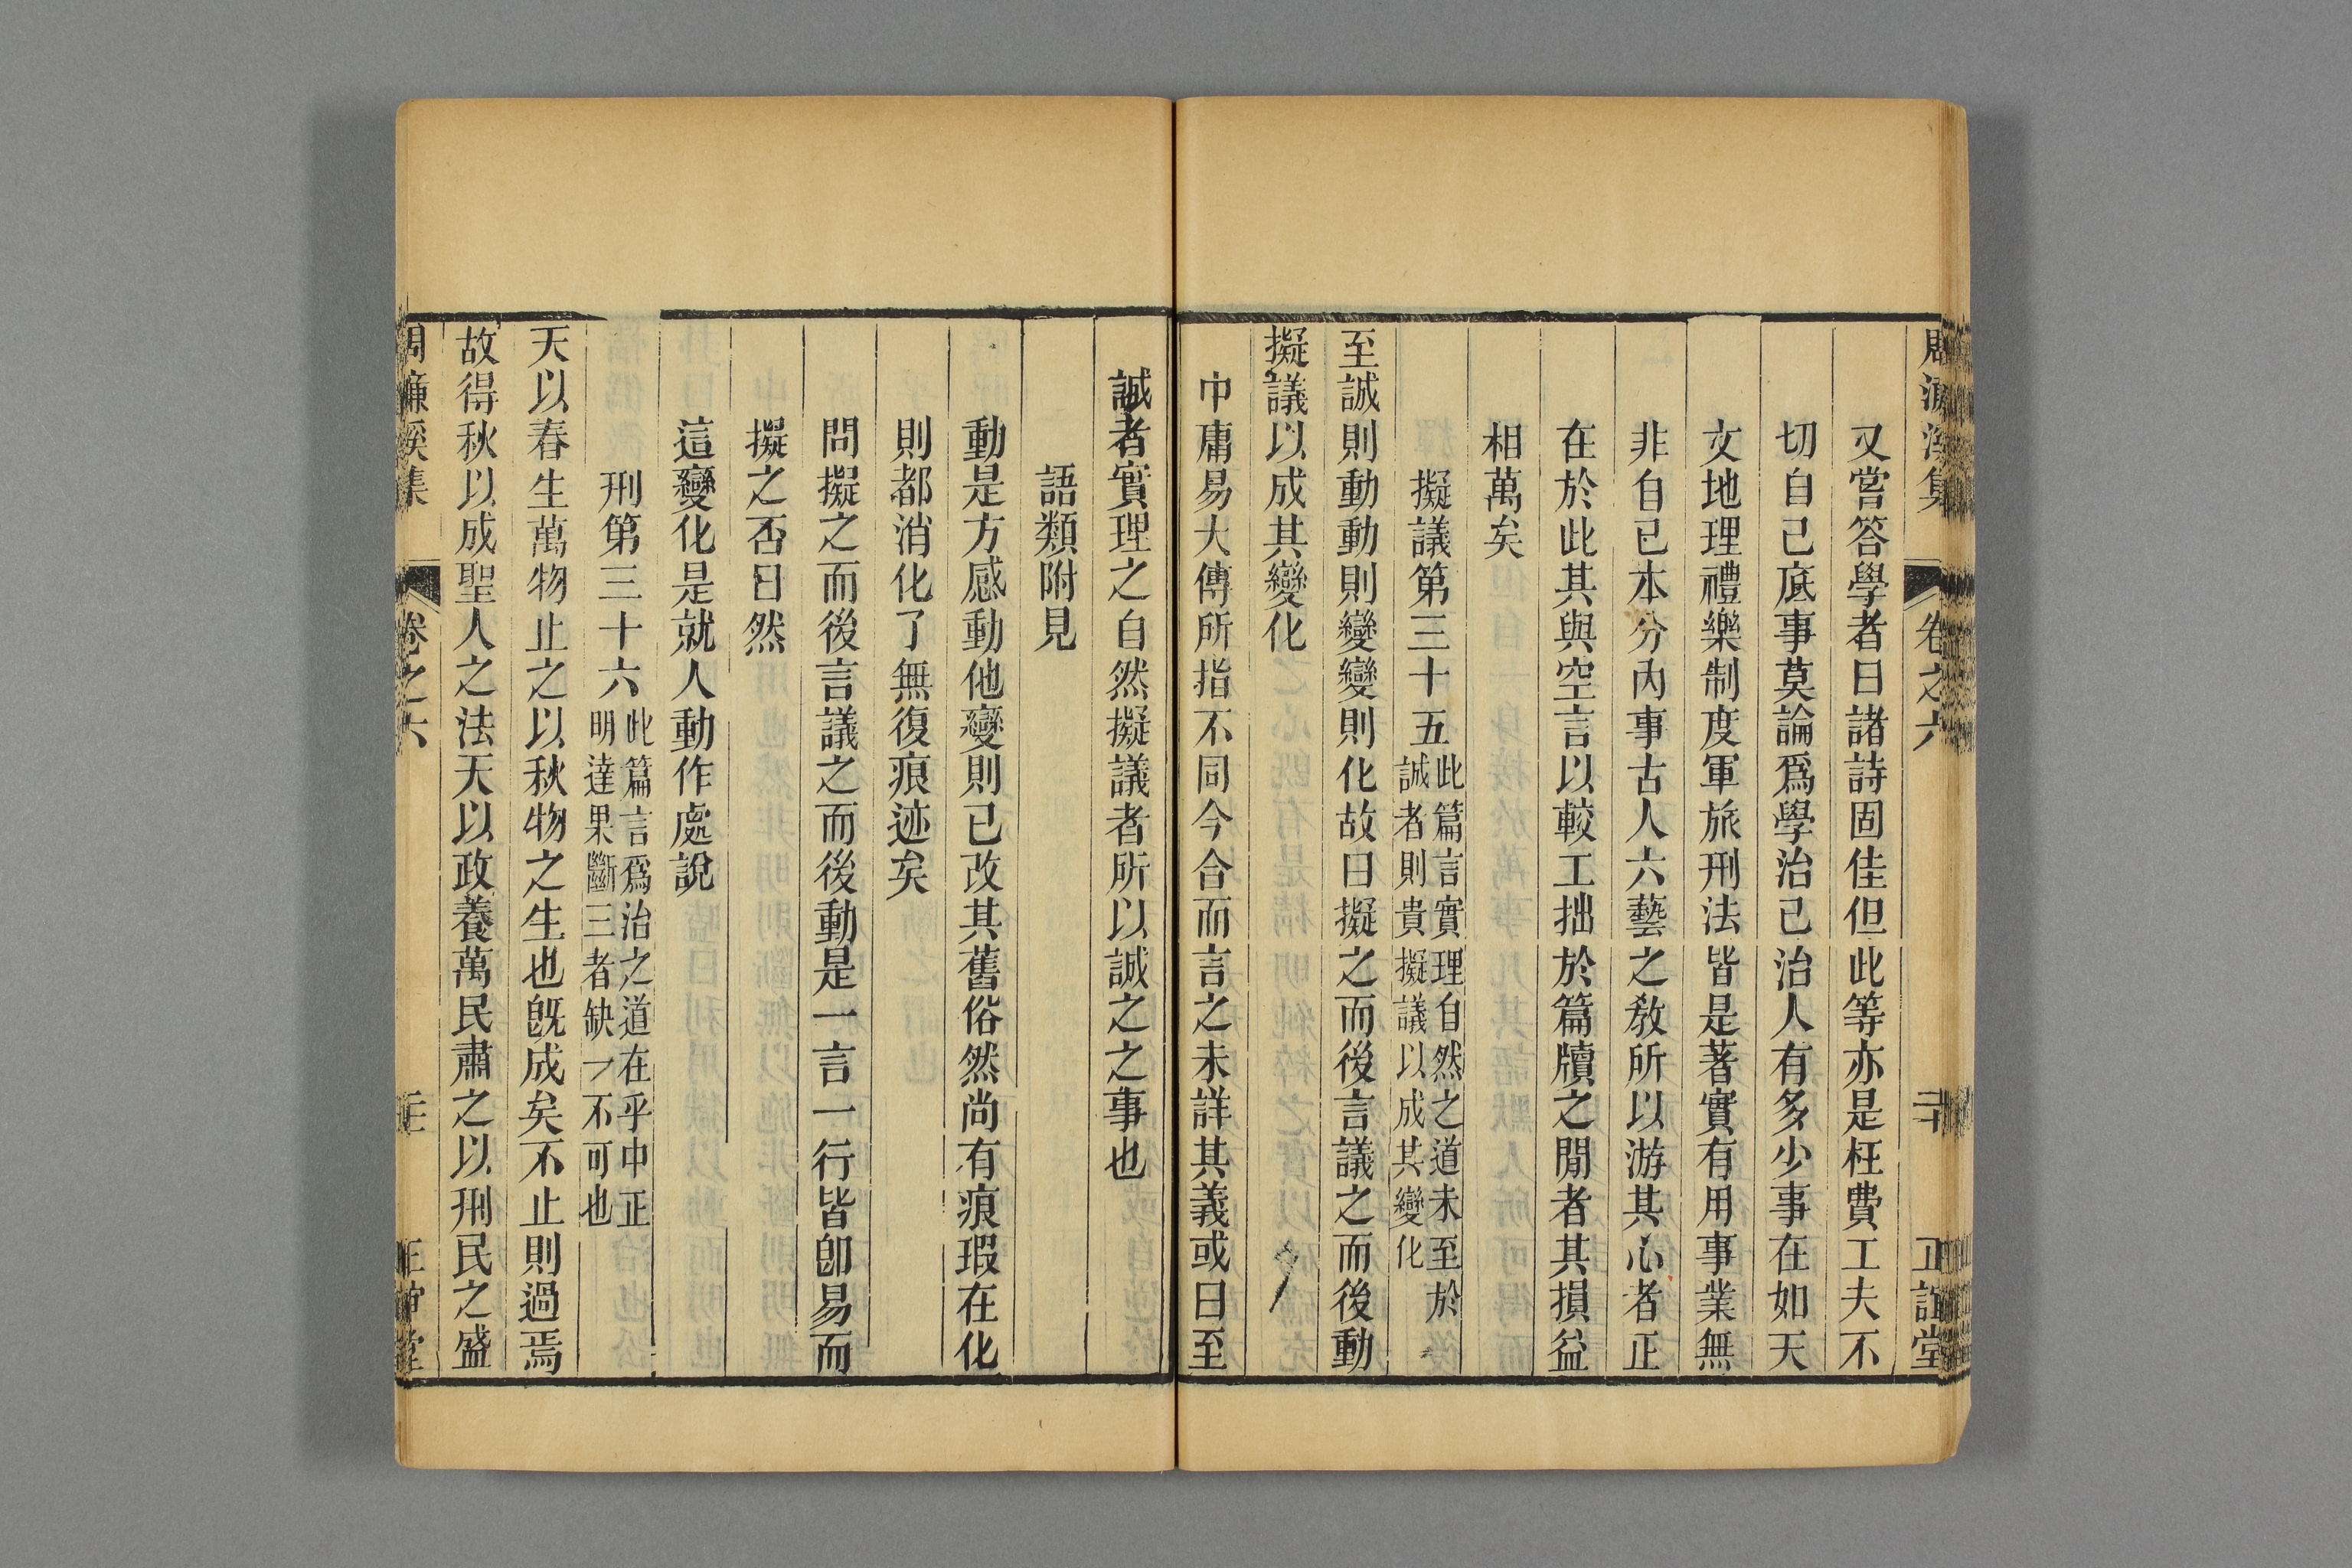 周濂溪集 卷之六 二十 正誼堂
又嘗答學者曰諸詩固佳但此等亦是枉費工夫不
切自己底事莫論爲學治己治人有多少事在如天
文地理禮樂制度軍旅刑法皆是著實有用事業無
非自已本分內事古人六藝之教所以游其心者正
在於此其與空言以較工拙於篇牘之閒者其損益
相萬矣
擬議第三十五
此篇言實理自然之道未至於
誠者則貴擬議以成其變化
至誠則動動則變變則化故曰擬之而後言議之而後動
擬議以成其變化
中庸易大傳所指不同今合而言之未詳其義或曰至
誠者實理之自然擬議者所以誠之之事也
語類附見
動是方感動他變則已改其舊俗然尚有痕瑕在化
則都消化了無復痕迹矣
問擬之而後言議之而後動是一言一行皆卽易而
擬之否曰然
這變化是就人動作處說
刑第三十六
此篇言爲治之道在乎中正
明達果斷三者缺一不可也
天以春生萬物止之以秋物之生也旣成矣不止則過焉
故得秋以成聖人之法天以政養萬民肅之以刑民之盛
周濂溪集 卷之六 堂